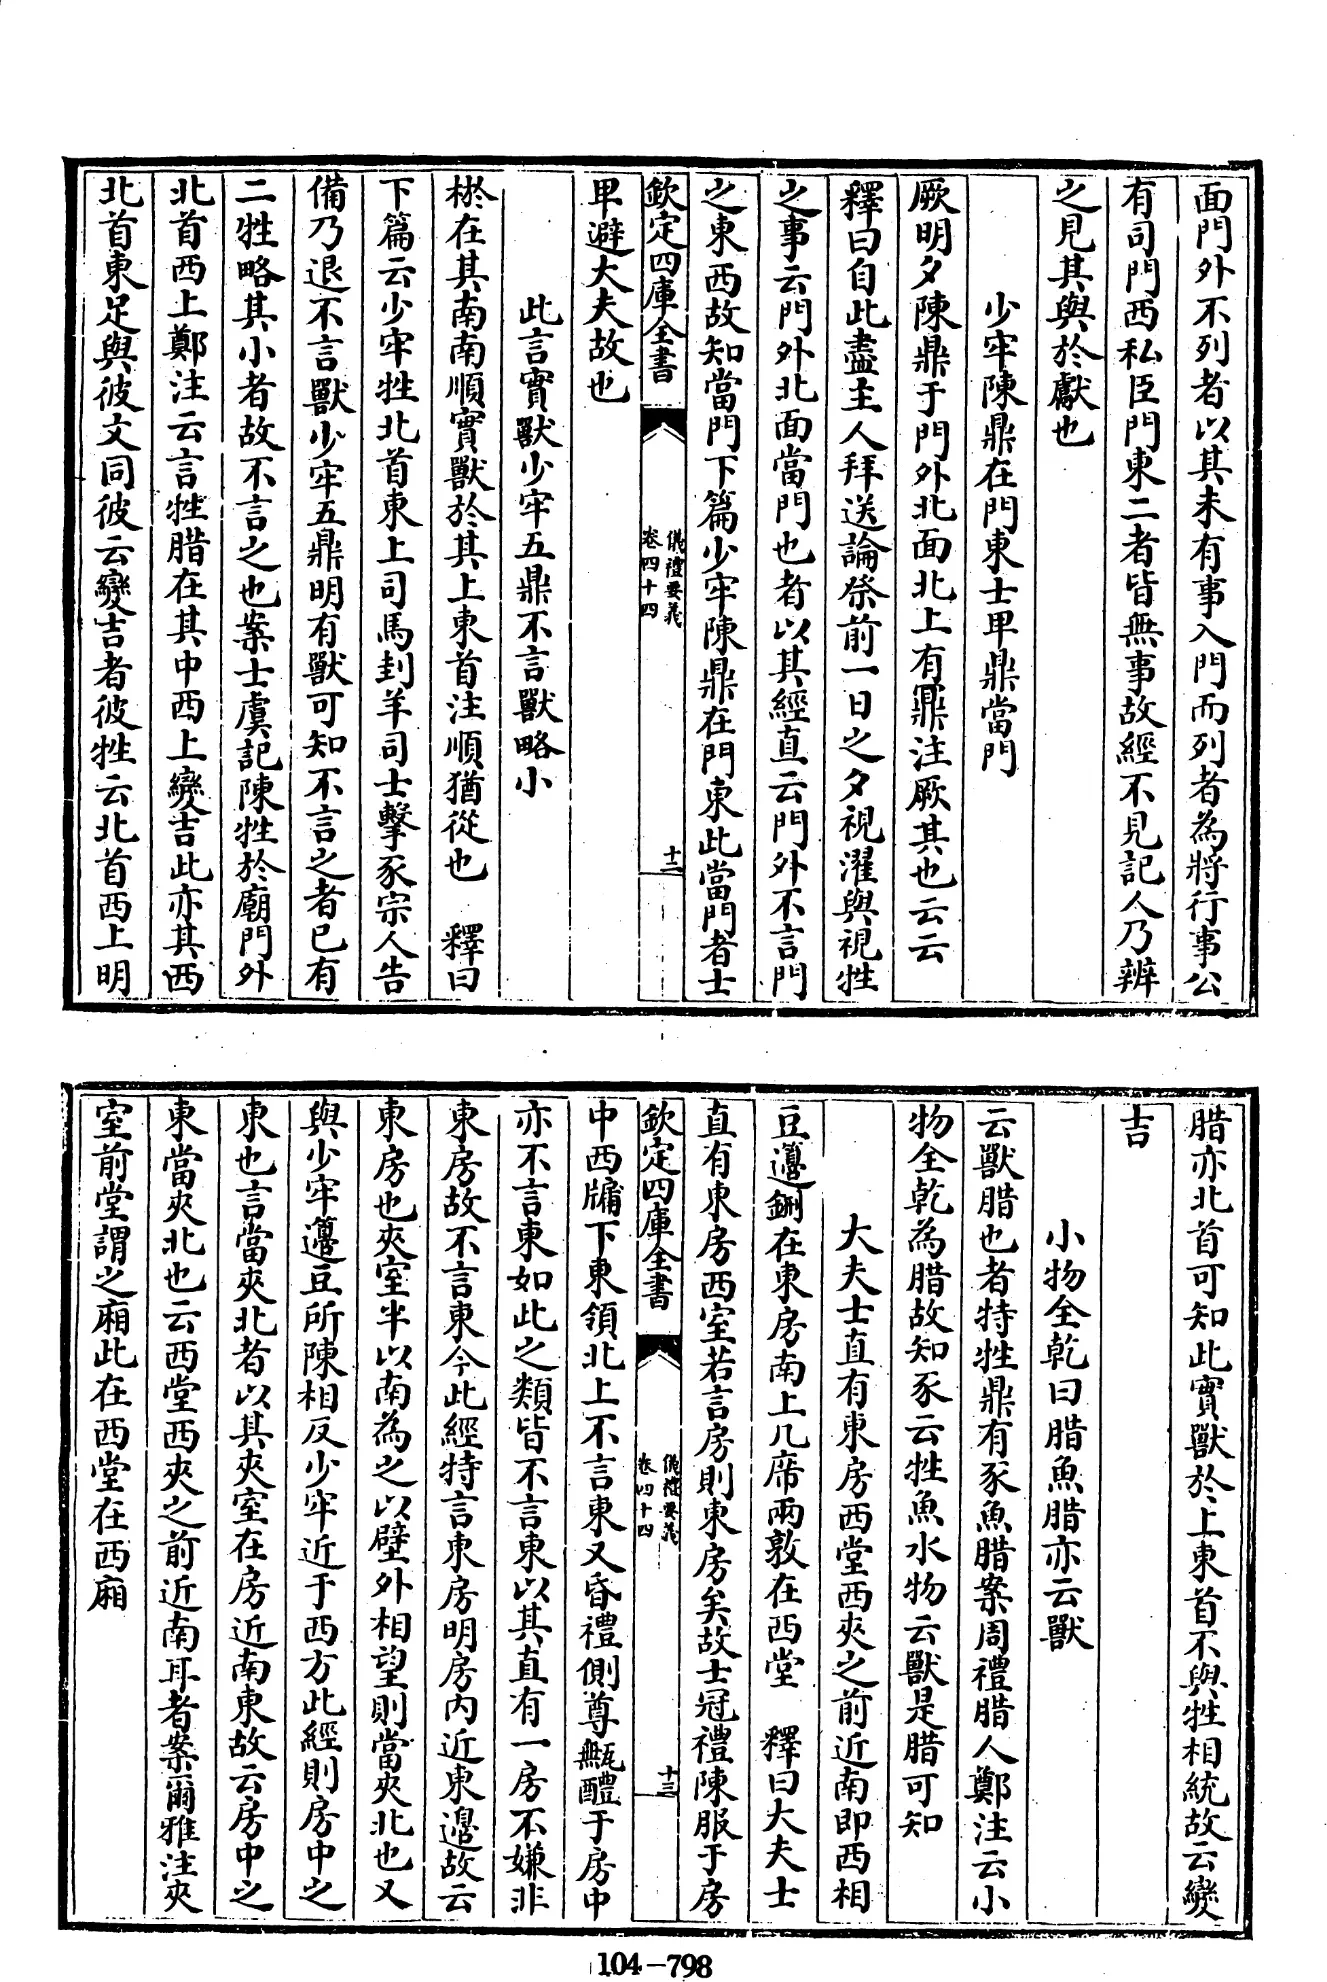 面門外不列者以其未有事入門而列者為將行事公
有司門西私臣門東二者皆無事故經不見記人乃辨
之見其與於獻也
少牢陳鼎在門東士甲鼎當門
厥明夕陳鼎于門外北面北上有鼏注厥其也云云
釋曰自此盡主人拜送論祭前一日之夕視濯與視牲
之事云門外北面當門也者以其經直云門外不言門
之東西故知當門下篇少牢陳鼎在門東此當門者士
欽定四庫全書
儀禮要義
卷四十四
十二
甲避大夫故也
此言實獸少牢五鼎不言獸略小
棜在其南南順實獸於其上東首注順猶從也 釋曰
下篇云少牢牲北首東上司馬刲羊司士擊豕宗人告
備乃退不言獸少牢五鼎明有獸可知不言之者已有
二牲略其小者故不言之也案士虞記陳牲於廟門外
北首西上鄭注云言牲腊在其中西上變吉此亦其西
北首東足與彼文同彼云變吉者彼牲云北首西上明
腊亦北首可知此實獸於上東首不與牲相統故云變
吉
小物全乾曰腊魚腊亦云獸
云獸腊也者特牲鼎有豕魚腊案周禮腊人鄭注云小
物全乾為腊故知豕云牲魚水物云獸是腊可知
大夫士直有東房西堂西夾之前近南即西相
豆籩鉶在東房南上几席兩敦在西堂 釋曰大夫士
直有東房西室若言房則東房矣故士冠禮陳服于房
欽定四庫全書
儀禮要義
卷四十四
十三
中西牖下東領北上不言東又昏禮側尊甒醴于房中
亦不言東如此之類皆不言東以其直有一房不嫌非
東房故不言東今此經特言東房明房內近東邊故云
東房也夾室半以南為之以壁外相望則當夾北也又
與少牢籩豆所陳相反少牢近于西方此經則房中之
東也言當夾北者以其夾室在房近南東故云房中之
東當夾北也云西堂西夾之前近南耳者案爾雅注夾
室前堂謂之廂此在西堂在西廂
104-798